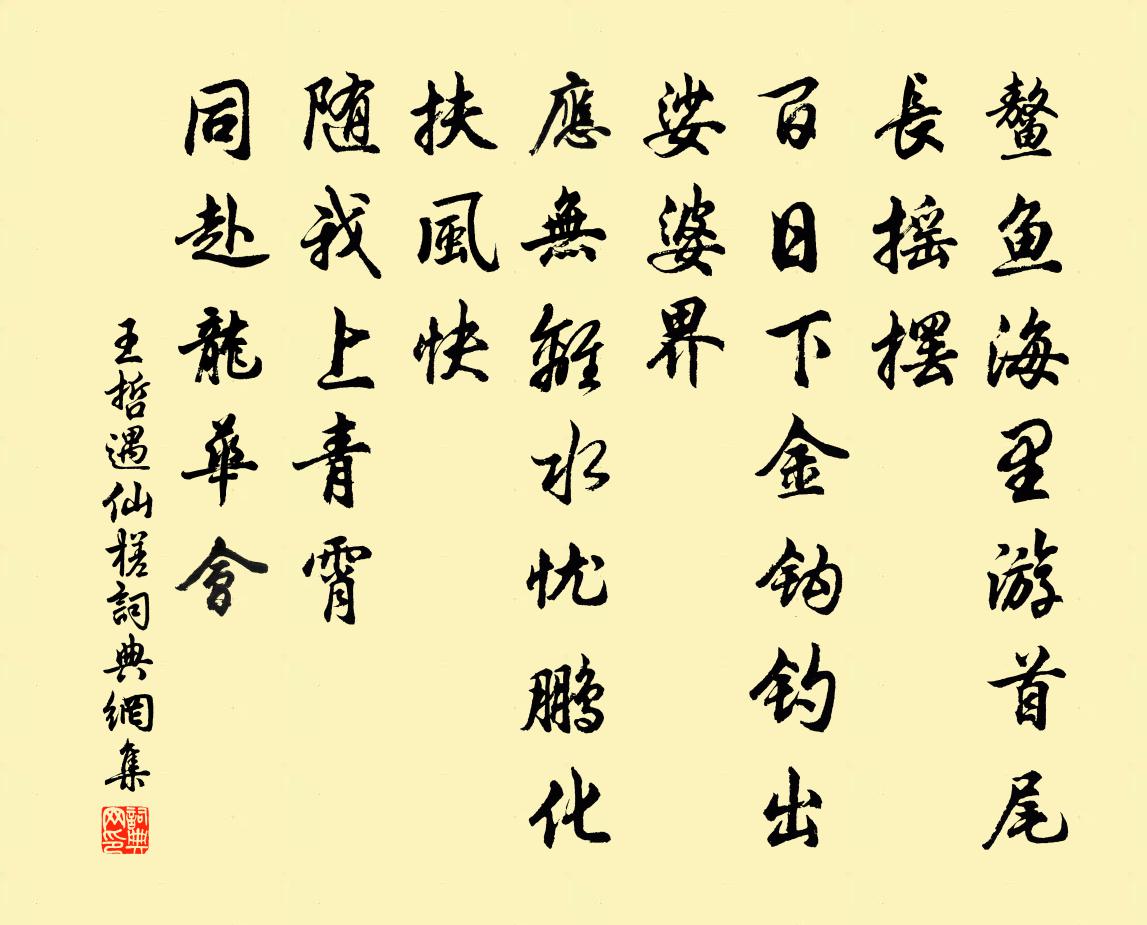 鳌鱼海里游首尾
長摇擺
百日下金钩钓出
娑婆界
應無離水忧鹏化
扶風快
随我上青霄
同赴龍華會
王哲遇仙槎詞典網集
詞典网印